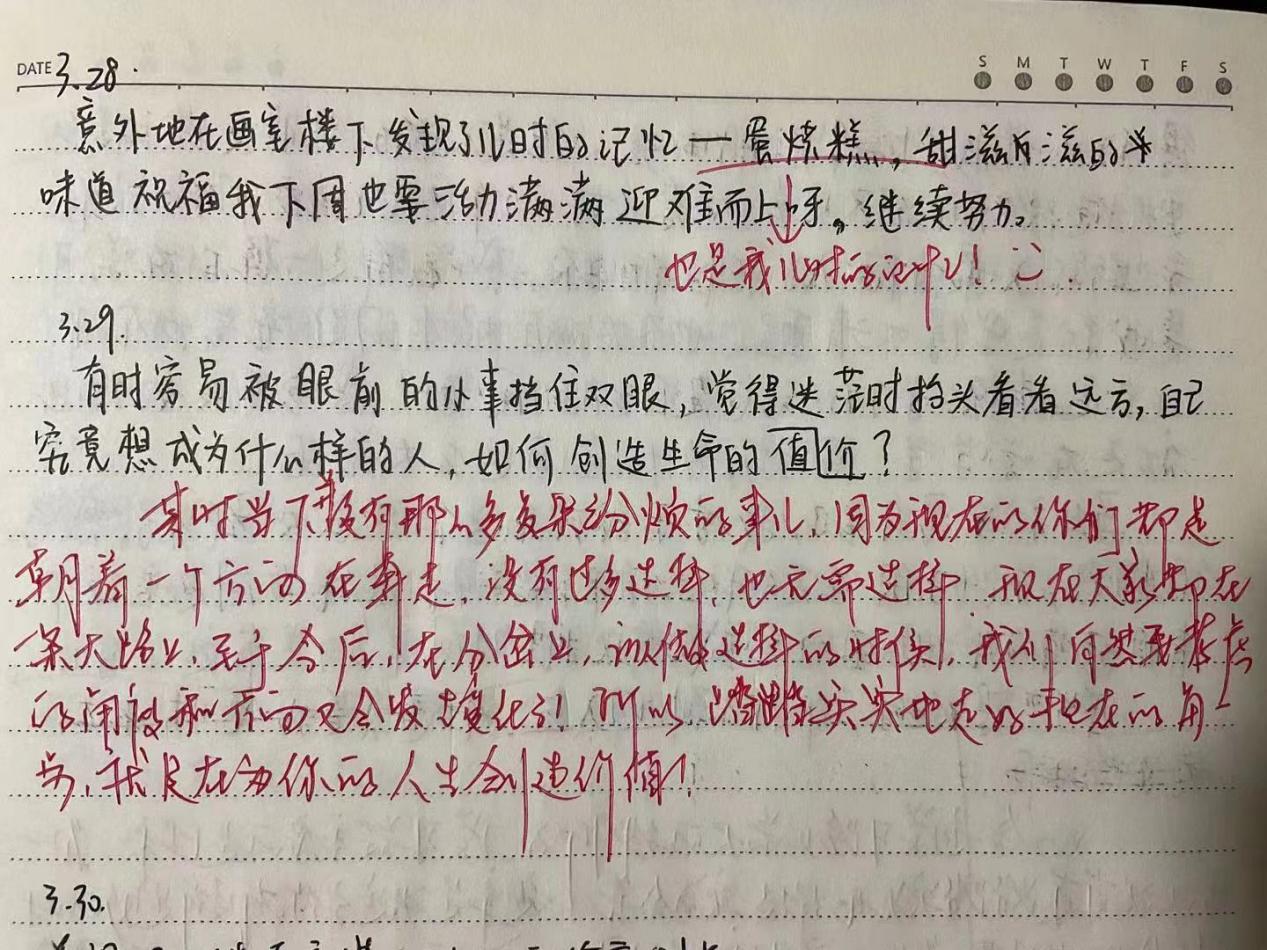 DATE 3.28.
S M T W T F S
意外地在画室楼下发现了儿时的记忆一蛋烘糕，甜滋滋的
味道祝福我下周也要活力满满迎难而上呀。继续努力。
也是我儿时的记忆！
3.29.
有时容易被眼前的小事挡住双眼，觉得迷茫时抬头看看远方，自己
究竟想成为什么样的人，如何创造生命的值价？
其实当下没有那么多复杂纷烦的事儿，因为现在的你们都是
朝着一个方向在奔走，没有过多选择，也无需选择，现在大家都在
一条大路上，至于今后，在分岔上，该做选择的时候，我们自然要考虑
的和方向又会发生变化了！所以，踏踏实实地走好现在的每一
步，就是在为你的人生创造价值！
3.30.